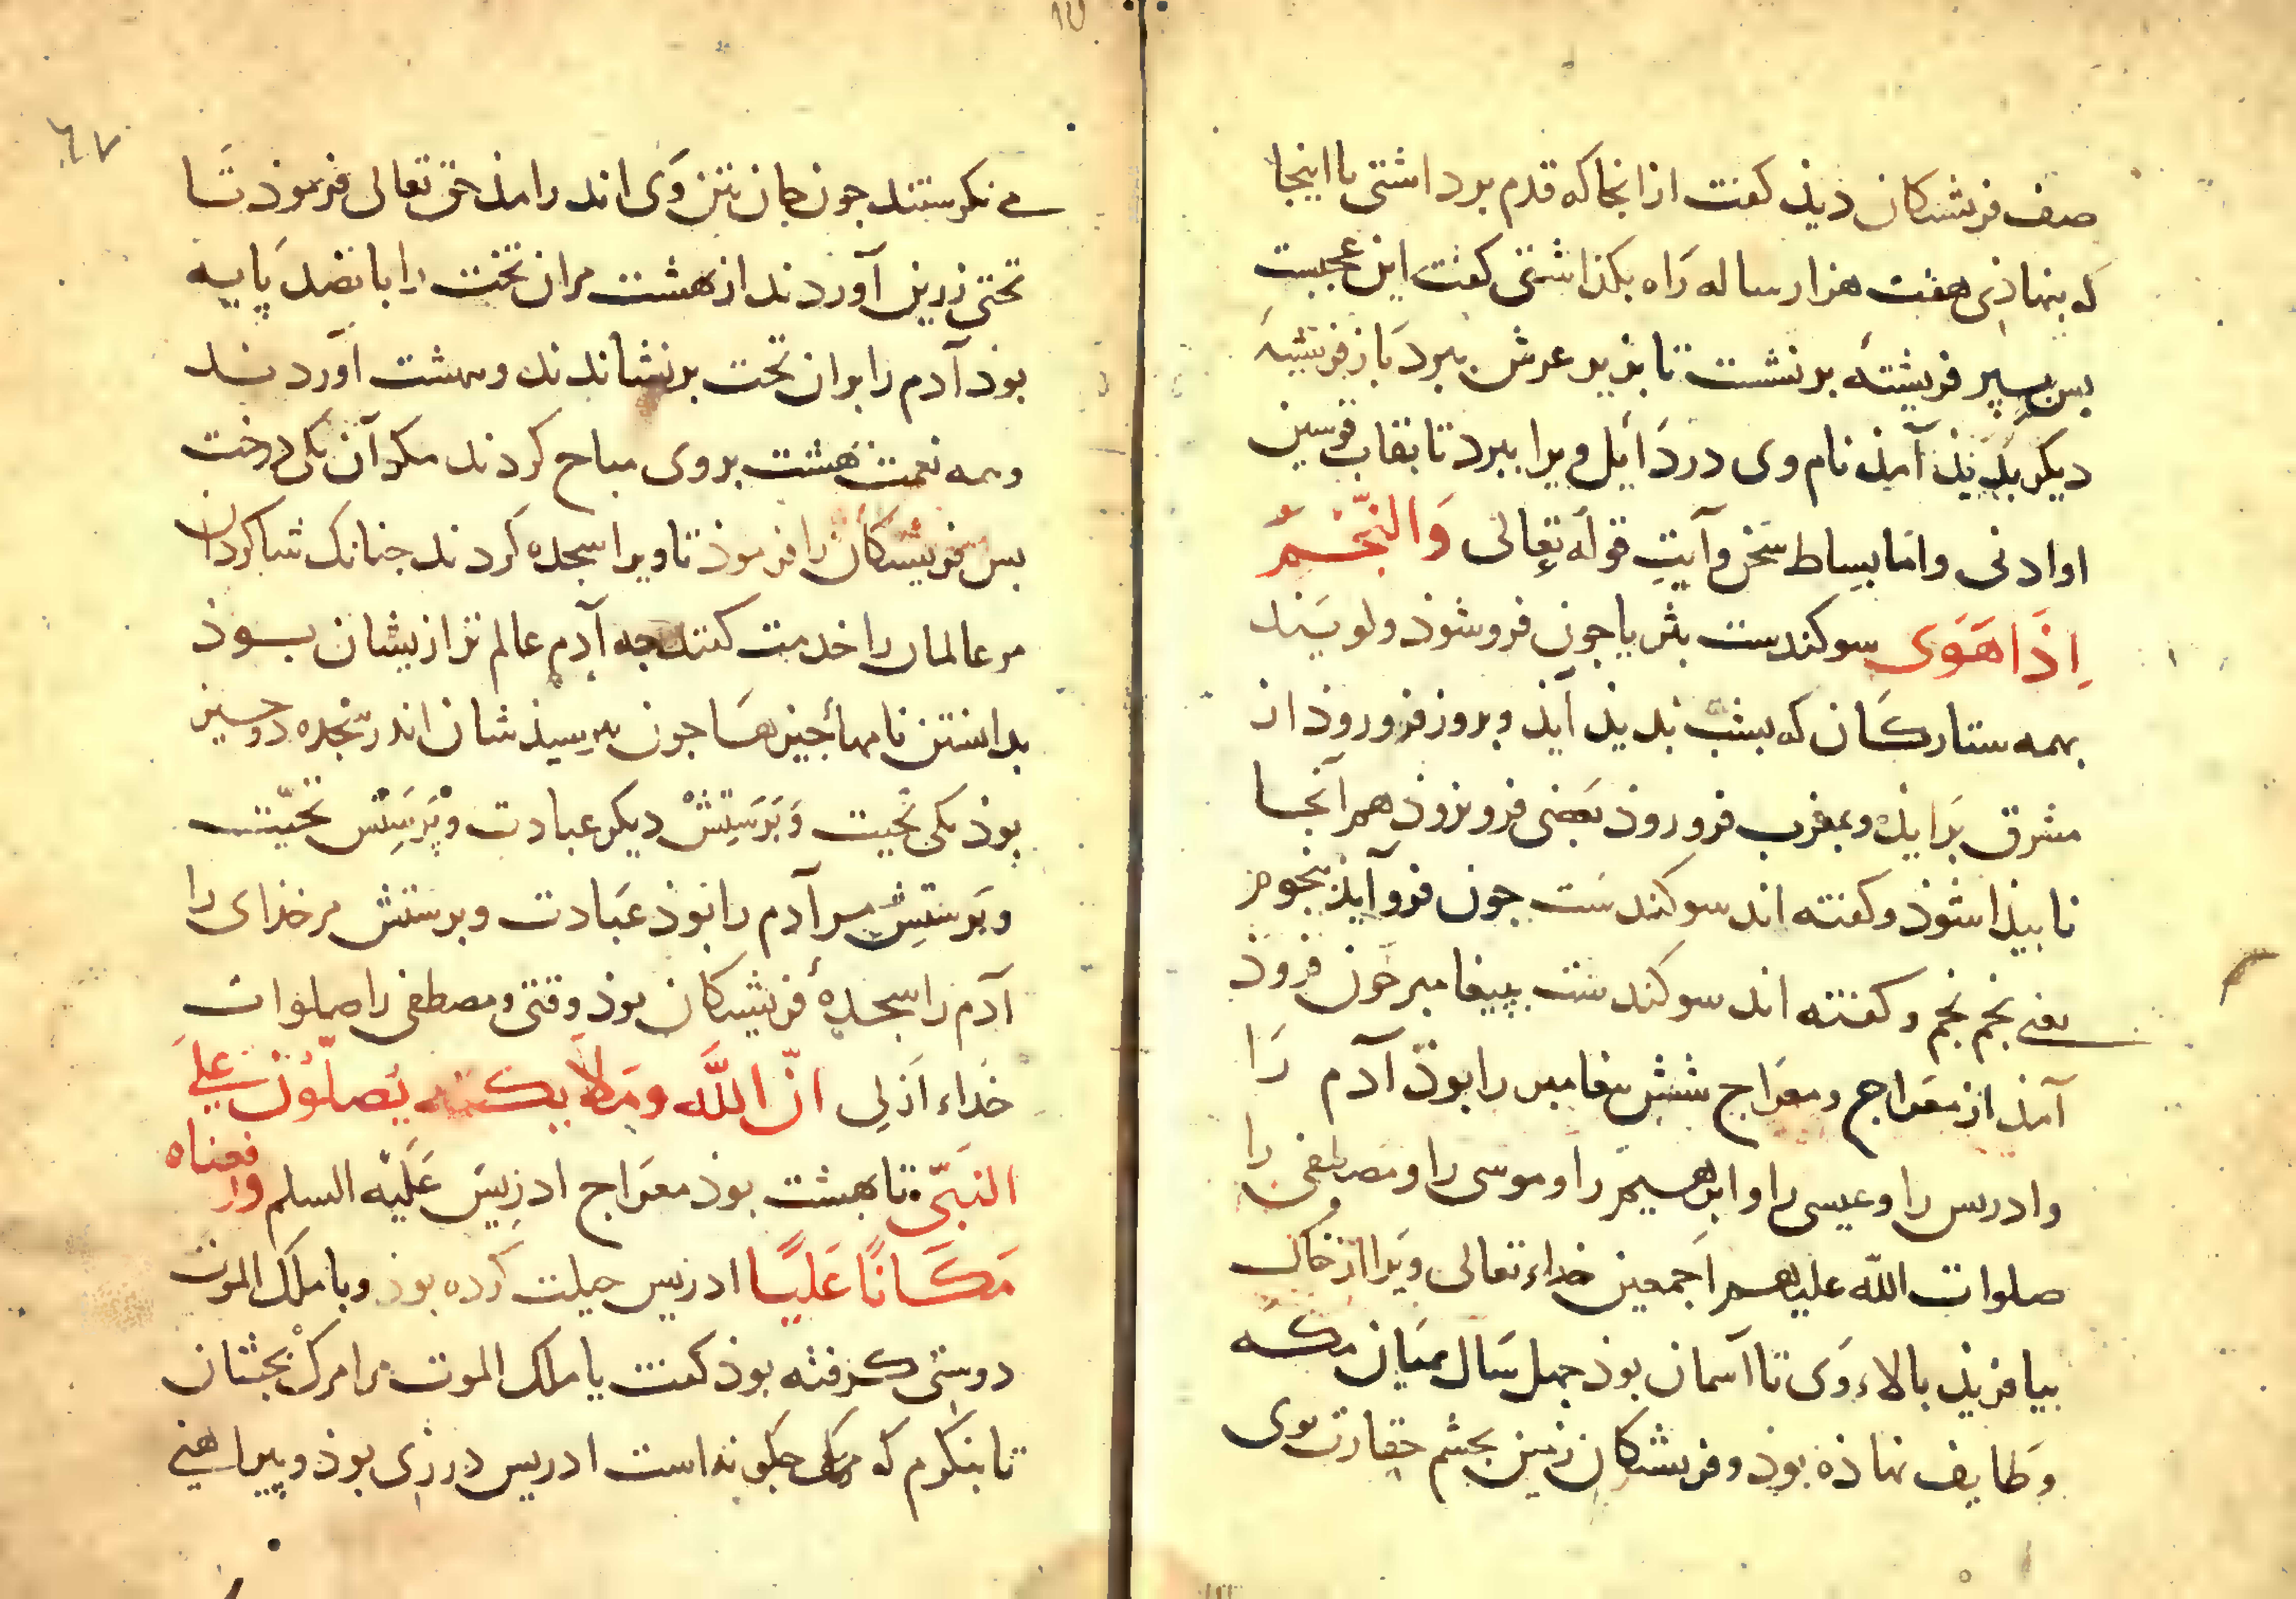 صف فریشتکان دیذ کفت از انجا که قدم برداشتی تا اینجا
که بنهاذی هفت هزار ساله راه بکذاشتی کفت این عجبست
بس بسپر فریشتهٔ برنشست تا بزیر عرش ببرد باز فریشتهٔ
دیکر بدیذ آمذ نام وی دردائیل ویرا ببرد تا بقاب قوسین
او ادنی و اما بساط سخن و آیت قوله تعالی وَالنَّجْمِ
اِذَا هَوَی سوکندست بثریا جون فرو شوذ ولو سند
بهمه ستارکان که بشب بدیذ آیذ و بروز فرو روذ از
مشرق برایذ و بمغرب فرو روذ یعنی فرو روذ هم آنجا
نابیذا شوذ و کفته اند سوکندست جون فرو آیذ نجوم
یعنی نجم نجم و کفته اند سوکندست بپیغامبر جون فروذ
آمذ از معراج و معراج شش پیغامبر را بوذ آدم را
و ادریس را و عیسی را و ابرهیم را و موسی را و مصطفی را
صلوات الله علیهم اجمعین خداء تعالی ویرا از خاک
بیافریذ بالاء وی تا آسمان بوذ جهل سال میان مکه
و طایف نهاذه بوذ و فریشتکان زمین بجشم حقارت بوی
می نکرستند جون جان بتن وی اندر امذ حق تعالی فرموذ تا
تختی زرین آوردند از بهشت مر ان تخت را بانصد پایه
بوذ آدم را بران تخت برنشاندند و ببهشت آوردند
و همه نعمت بهشت بر وی مباح کردند مکر آن یکی درخت
بس فریشتکان را فرموذ تا ویرا سجده کردند جنانک شاکردان
مر عالمان را خدمت کنند جه آدم عالم تر از یشان بوذ
بدانستن نامهاء جیزها جون بپرسیذشان اندر سجده دو جیز
بوذ یکی تحیت و پرستش دیکر عبادت و پرستش تحیت
و پرستش مر آدم را بوذ عبادت و برستش مر خذای را
آدم را سجدهٔ فریشتکان بوذ وقتی و مصطفی را صلوات
خداء ازلی انّ اللّه وملایکته یصلّون علی
النبیّ تا بهشت بوذ معراج ادریس علیه السلم ورفعناه
مَکَانًا عَلیًا ادریس حیلت کرده بوذ و با ملک الموت
دوستی کرفته بوذ کفت یا ملک الموت مرا مرک بجشان
تا بنکرم که مرک جکونه است ادریس درزی بوذ و پیراهنی